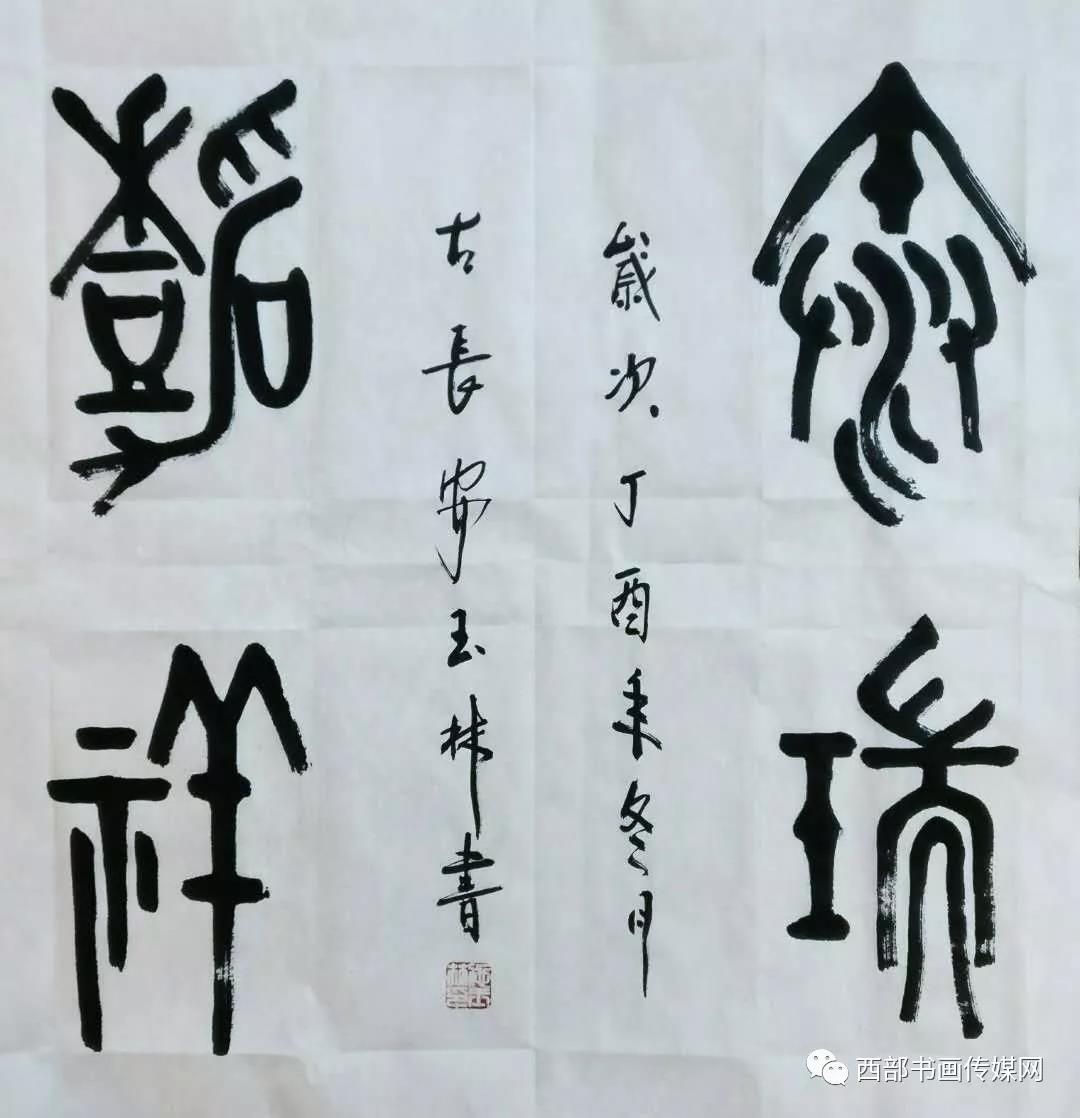 泰瑞
嘉祥
歲次丁酉年冬月
古長安玉林書
西部书画传媒网